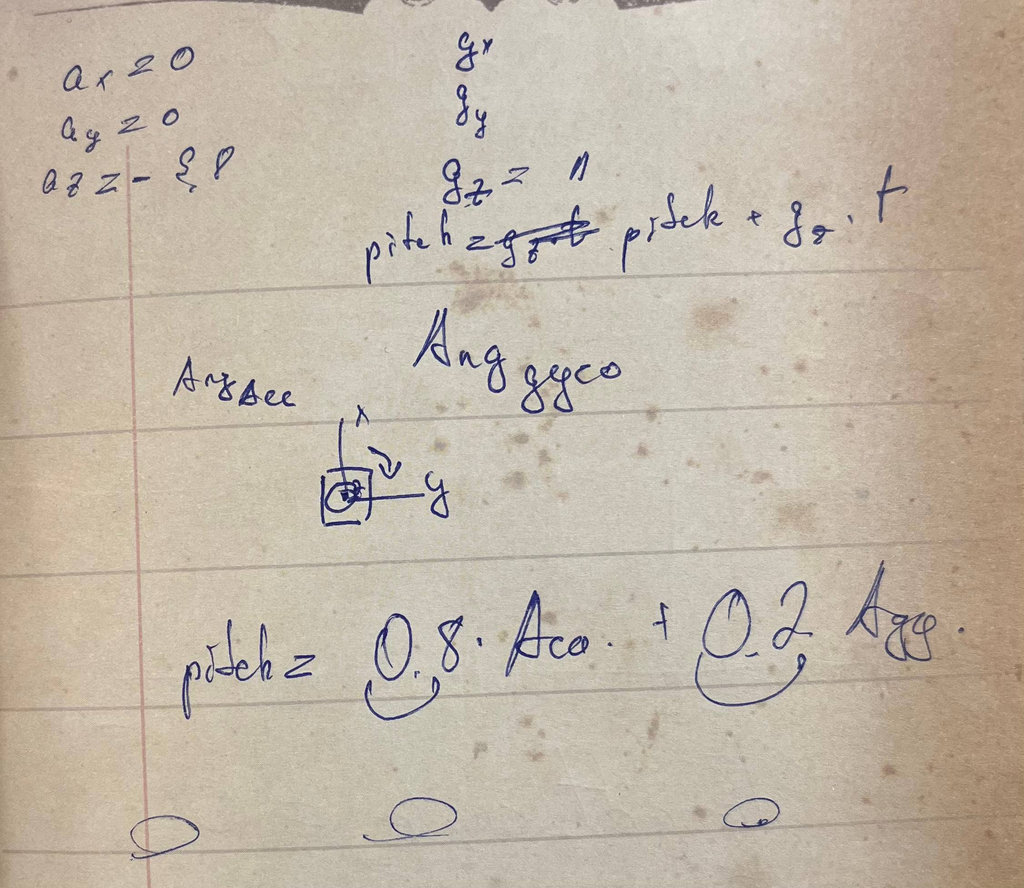 ax = 0
ay = 0
az = -
gx
gy
gz =
pitch = gz · t pitch + gz · t
Ang Acc
Ang gyro
x
y
pitch = 0.8 · Acc. + 0.2 Agy.